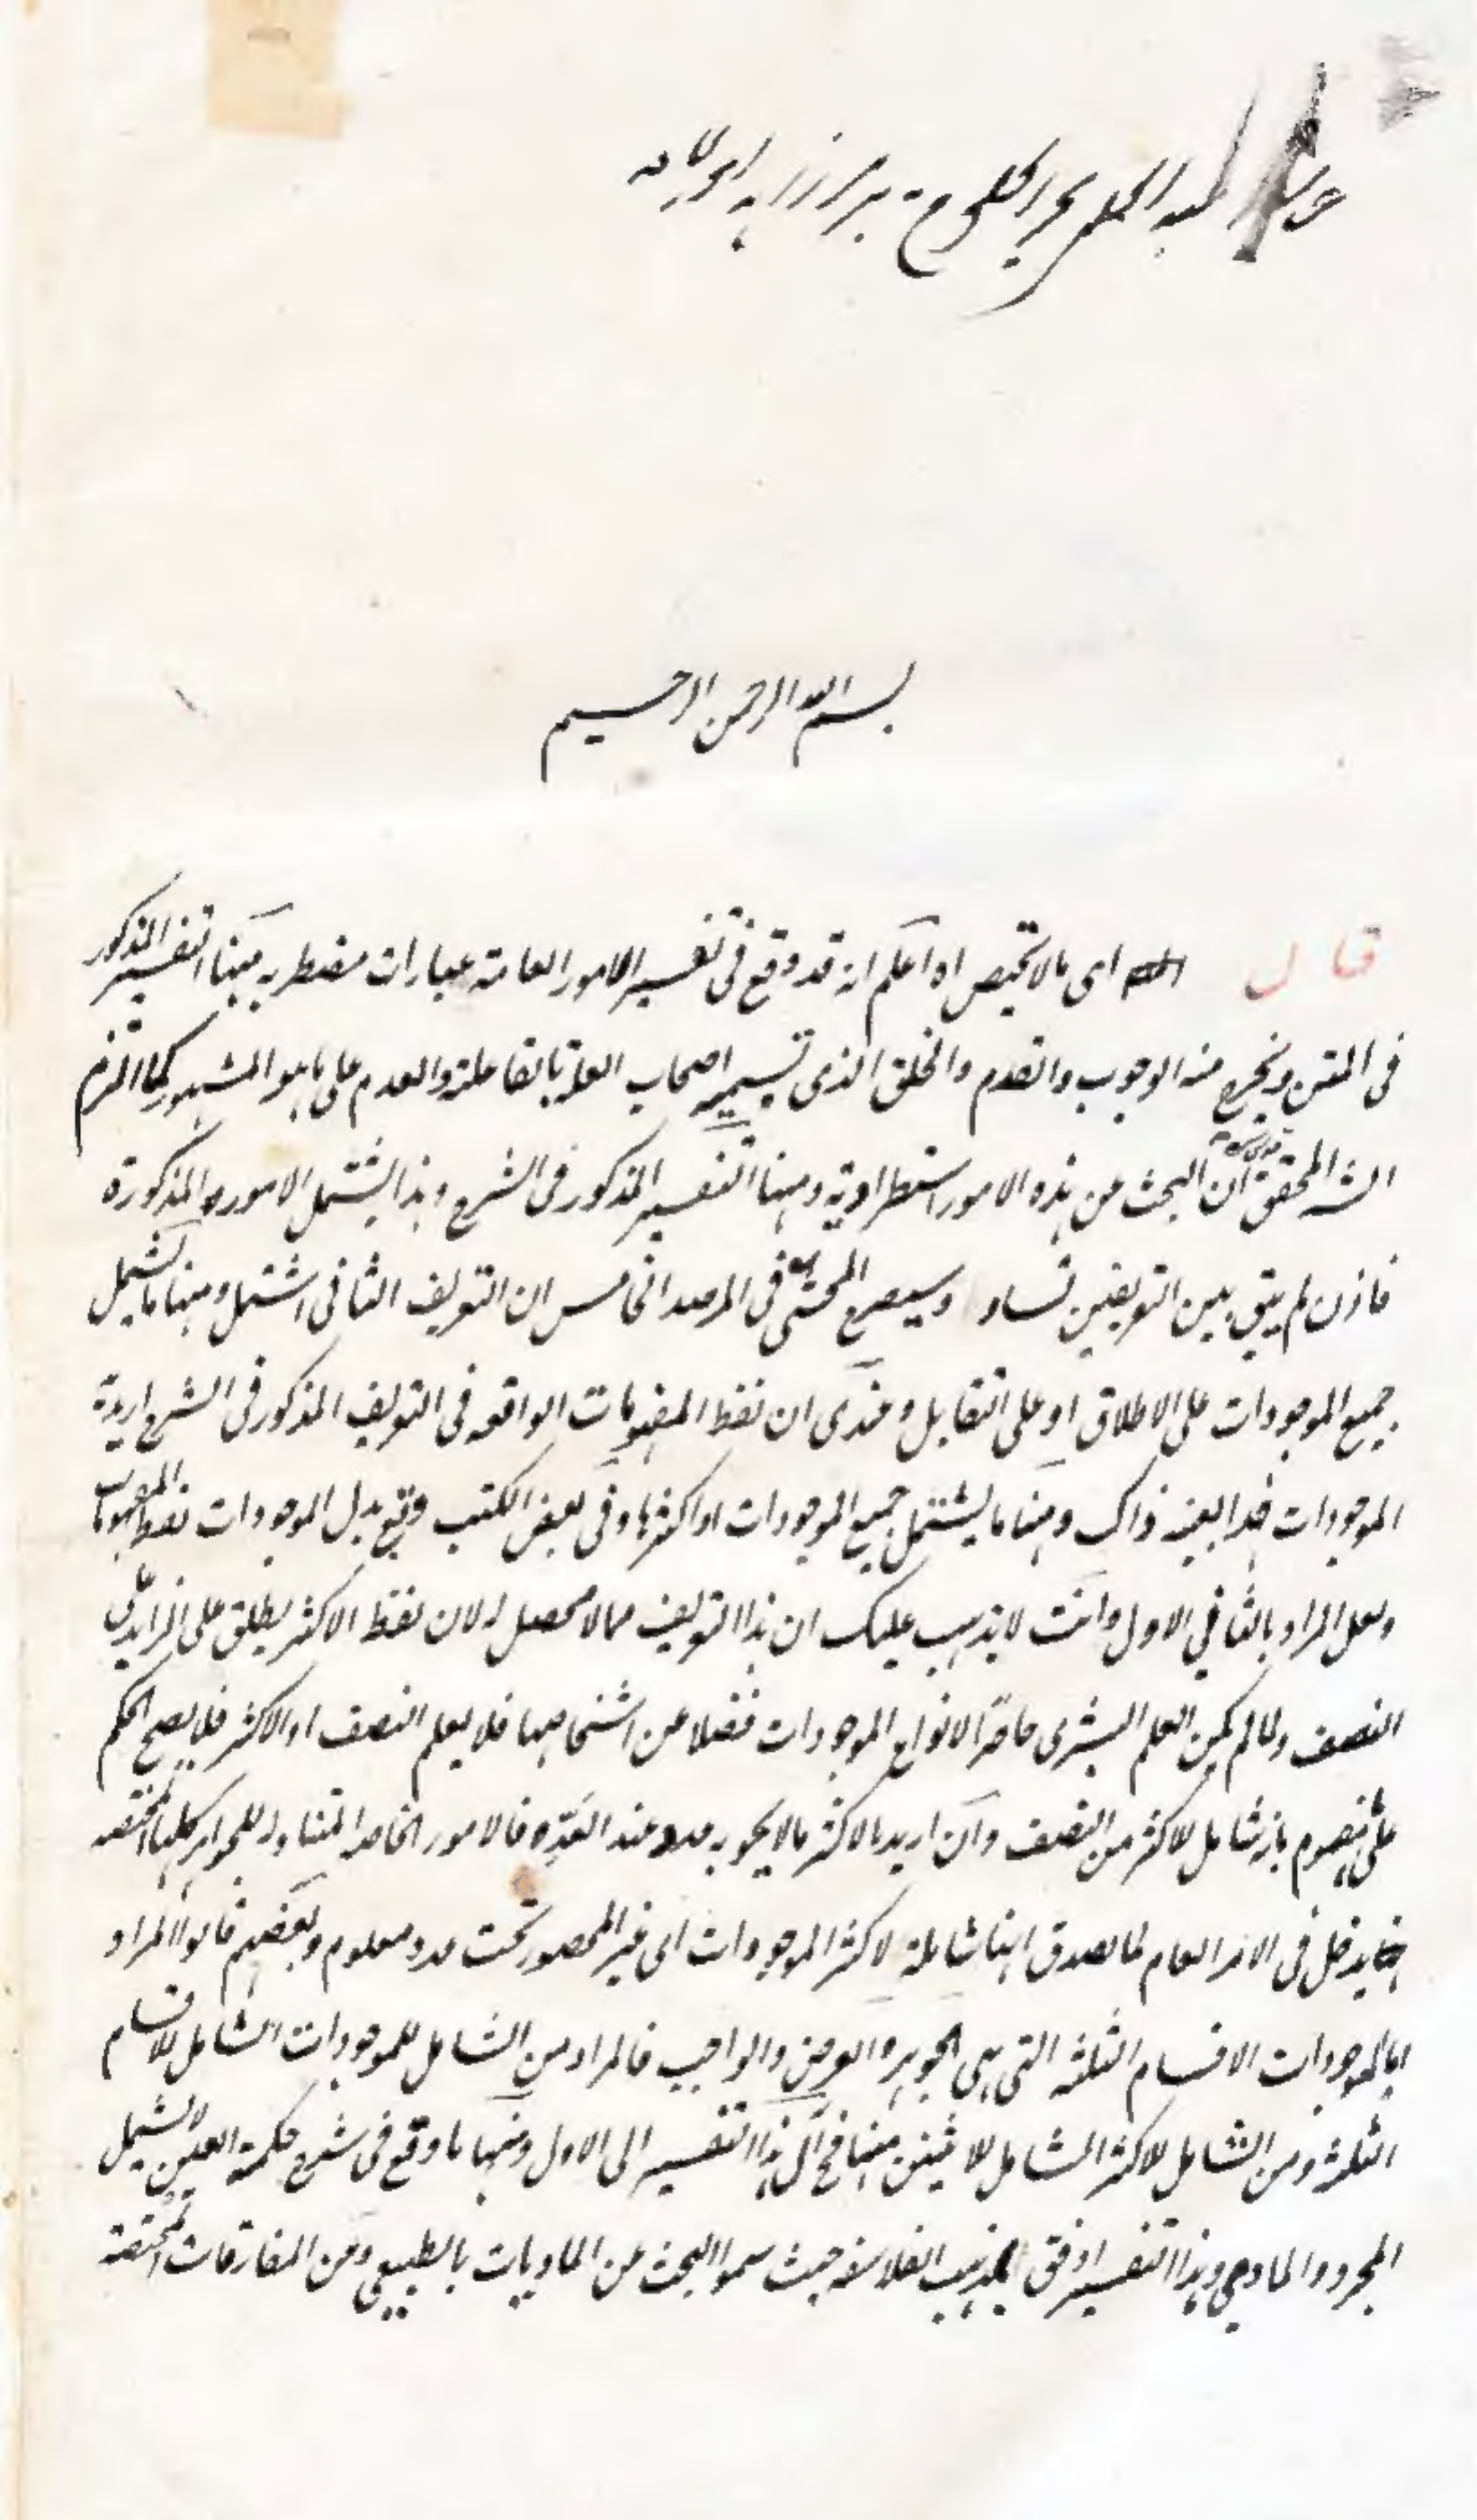 عبد العلي بحر العلوم میر زاہد
بسم الله الرحمن الرحيم
قال اى مالا تخيص اه اعلم انه قد وقع فى تفسير الامور العامة عبارات مضطربة منها التفسير المذكور
فى المتن ويخرج منه الوجوب والقدم والخلق الذى تسميه اصحاب العلم والعدم على ما هو المشهور كما التزم
الشـ المحقق ان البحث عن هذه الامور استطرادية ومنها التفسير المذكور فى الشرح وهذا يشتمل الامور المذكورة
فاذن لم يبق بين التعريفين تساو وسيصرح المحشى فى المرصد الخامس ان التعريف الثانى اشتمل ومنها ما يشمل
جميع الموجودات على الاطلاق او على التقابل وعندى ان لفظ المفهومات الواقعه فى التعريف المذكور فى الشرح اريد به
الموجودات فهذا بعينه ذاك ومنها ما يشتمل جميع الموجودات او اكثرها وفى بعض الكتب وقع بدل الموجودات لفظ المفهومات
ولعل المراد بالثانى الاول وانت لا يذهب عليك ان هذا التعريف مما لا محصل له لان لفظ الاكثر يطلق على الزايد على
النصف ولما لم يكن العلم البشرى حاصرا لانواع الموجودات فضلا عن اشخاصها فلا يعلم النصف او الاكثر فلا يصح الحكم
على مفهوم بانه شامل للاكثر من النصف وان اريد بالاكثر مالا يحويه عدد عند العدّ فالامور الخاصة المتناولة للجواهر كلها المختصه
بها يدخل فى الامر العام لما صدق انها شاملة لاكثر الموجودات اى غير المحصور تحت عدد معلوم وبعضهم قالوا المراد
بالموجودات الاقسام الثلثه التى هى الجوهر والعرض والواجب فالمراد من الشامل للموجودات الشامل للاقسام
الثلثه ومن الشامل للاكثر الشامل للاثنين منها فح آل هذا التفسير الى الاول ومنها ما وقع فى شرح حكمة العين لا يشمل
المجرد والمادى وهذا التفسير اوفق بمذهب الفلاسفه حيث سموا البحث عن الماديات بالطبيعى وعن المفارقات المختصة